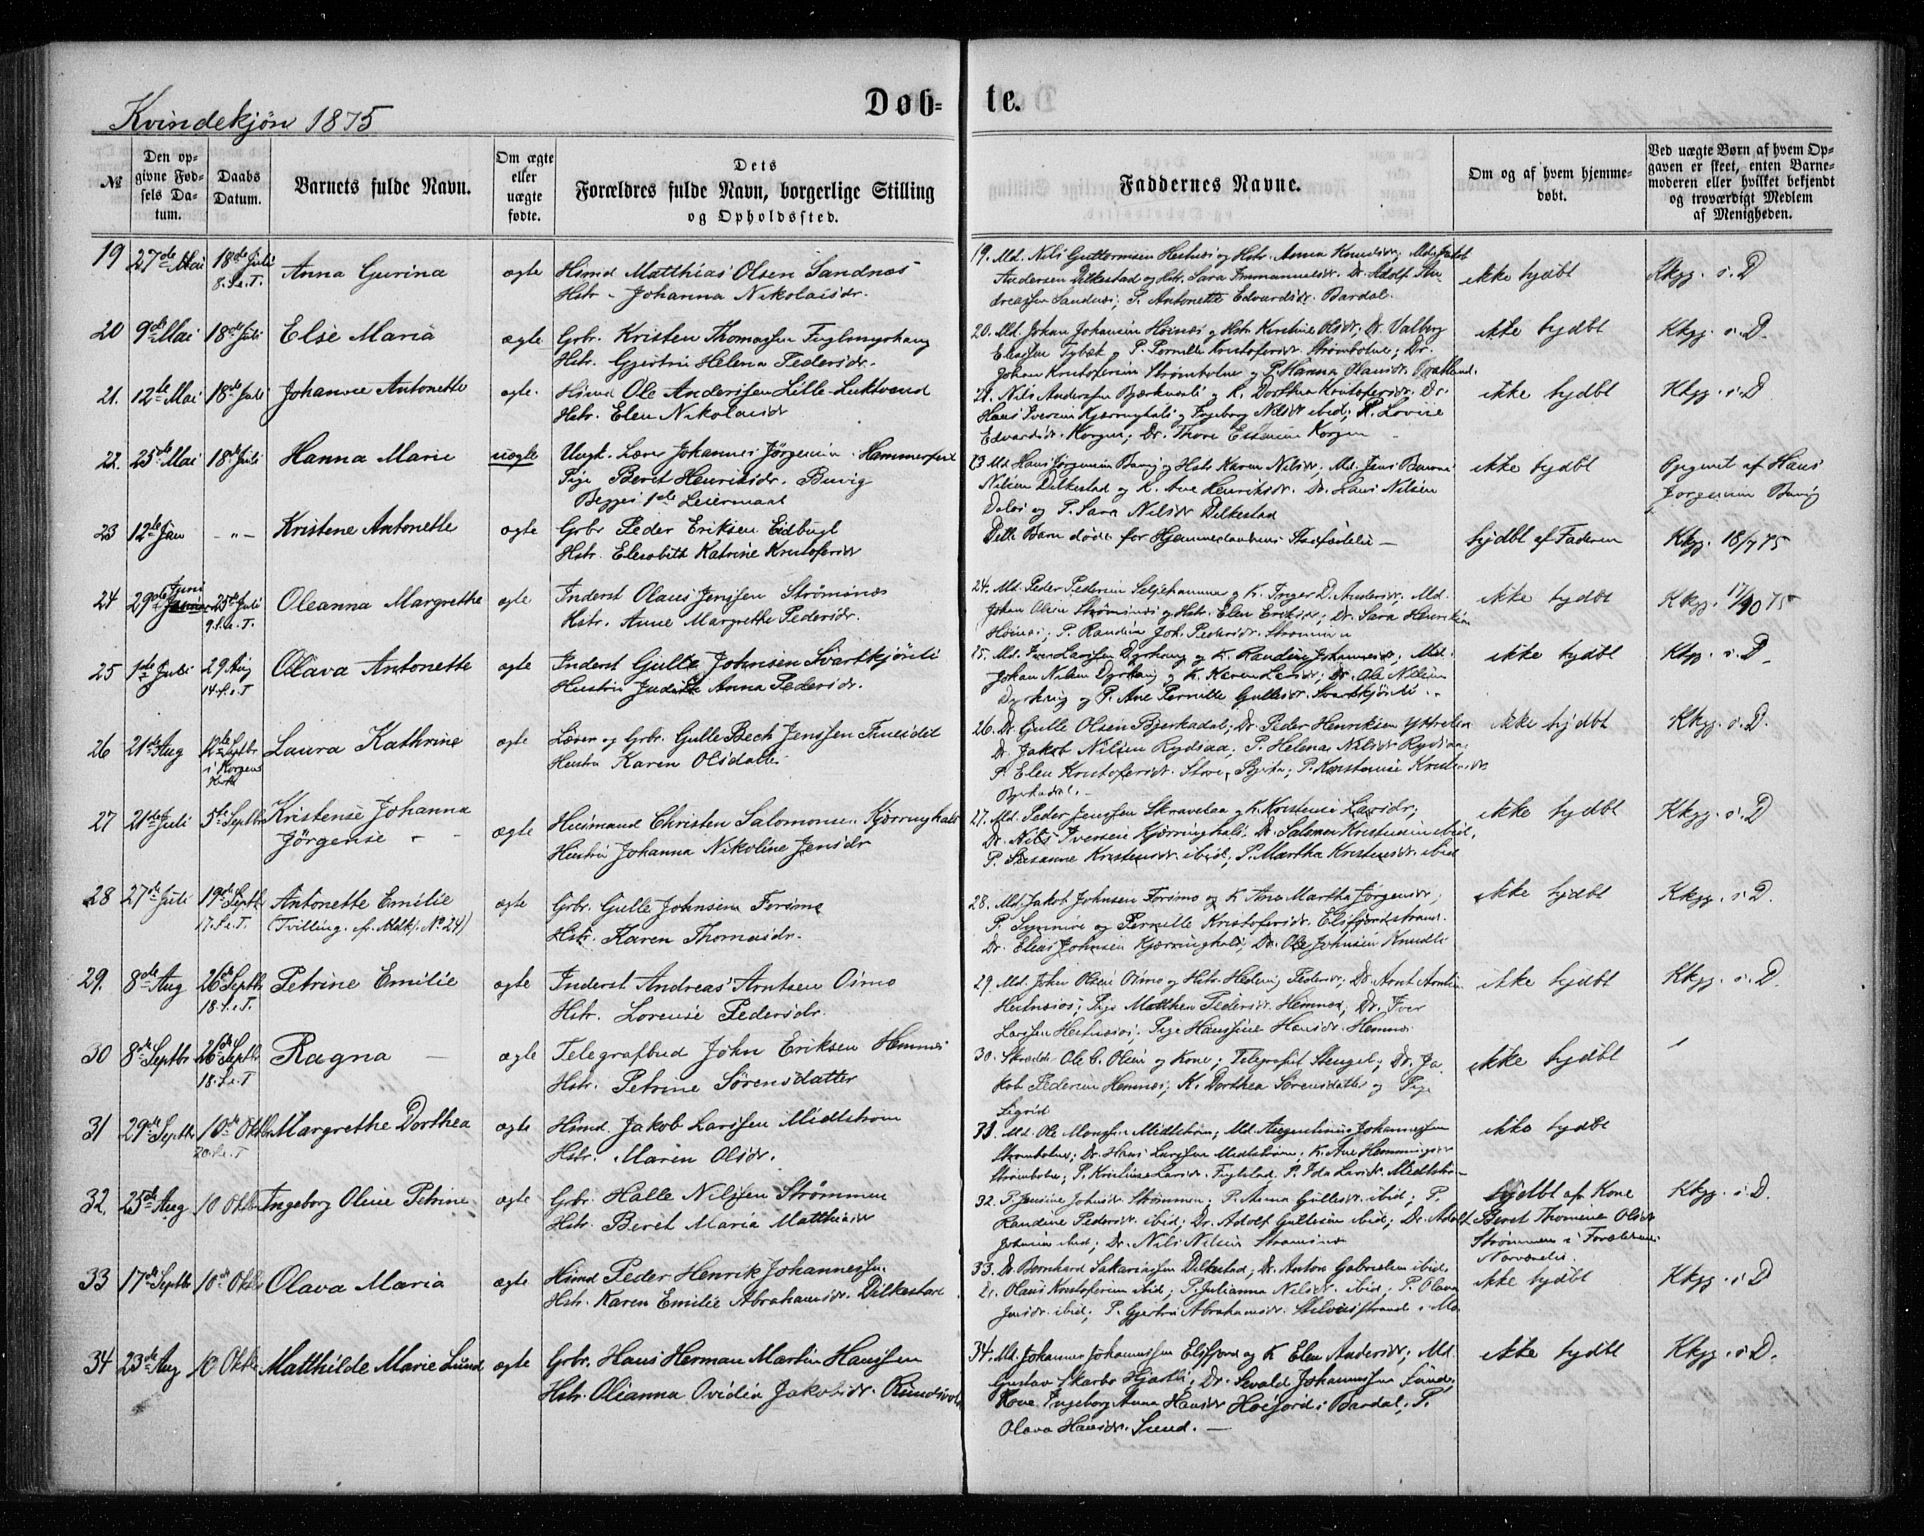 Kvindekjøn 1875
Døb-
te.
№
Den op-
givne Fød-
sels Da-
tum.
Daabs
Datum.
Barnets fulde Navn.
Om ægte
eller
uægte
fødte.
Dets
Forældres fulde Navn, borgerlige Stilling
og Opholdssted.
Faddernes Navne.
Om og af hvem hjemme-
døbt.
Ved uægte Børn af hvem Op-
gaven er skeet, enten Barne-
moderen eller hvilket bekjendt
og troværdigt Medlem
af Menigheden.
19 27de Mai 18de Juli Anna Gurina ægte Hsmd Matthias Olsen Sandnæs
8.S.e.T. Hstr. Johanna Nikolaisdr.
19. Md. Nils Guttormsen Hestnæs og Hstr. Anna Knudsdr. Md.
Andersen Dilkestad og Hstr. Sara Immanuelsdr. Dr. Adolf An-
dreassen Sandnæs; P. Antonette Edvardsdr. Bardal.
ikke hjdbt Kkgg. s. D
20 9de Mai 18de Juli Else Maria ægte Grbr. Kristen Thomassen Fuglmyrhaug
Hstr. Gjertru Helena Pedersdr.
20. Md. Johan Johansen Høinæs og Hstr. Kirstine Olsdr; Dr. Valberg
Eliassen Fybæk og P. Pernille Kristofersdr. Strømbolne; Dr.
Johan Kristofersen Strømbolne og P. Hanna Olausdr. Bratland.
ikke hjdbt Kkgg. s. D.
21. 12te Mai 18de Juli Johanne Antonette ægte. Hsmd Ole Anderssen Lille-Luktvand
Hstr. Elen Nikolaisdr
21. Nils Andersen Bjerkmoli og K. Dorthea Kristofersdr. Dr.
Hans Iversen Kjærringhals og Ingeborg Nilsdr ibid; P. Lovise
Edvardsdr. Korgen; Dr. Thore Korgen
ikke hjdbt Kkgg. s. D
22. 25de Mai 18de Juli Hanna Marie uægte Ungk. Lærer Johannes Jörgensen Hammerfest
Pige Beret Henriksdr. Buvig
Begges 1ste Leiermaal
23 Md Hans Jörgensen Buvig og Hstr. Karen Nilsdr; Md. Jens
Nilsen Dilkestad og K. Ane Henriksdr. Dr. Lars Nilsen
og P. Sara Nilsdr Dilkestad
ikke hjdbt Opgivet af Hans
Jorgensen Buvig
23 12te Jan -"- Kristene Antonette ægte Grbr Peder Eriksen Eidbugt
Hstr. Elisabeth Katrine Kristofersdr
Dette Barn døde før Hjemmedaabens Stadfæstelse —
hjdbt af Faderen Kkgg. 18/7 75
24 29de Juni 25de Juli Oleanna Margrethe ægte Inderst Olaus Jenssen Strömsnæs
9.S.e.T. Hstr. Anne Margrethe Pedersdr.
24. Md. Peder Pedersen Seljehammer og K. Inger D. Andersdr. Md.
Johan Olsen Strömsnæs og Hstr. Elen Eriksdr; Dr. Sara Henriksen
Høinæs; P. Randine Joh. Pedersdr. Strømmen
ikke hjdbt Kkgg. 17/10 75
25 1ste Juli 29 Aug Olava Antonette ægte Inderst Gulle Johnsen Svartkjönli
14.S.e.T Hustru Judith Anna Pedersdr.
25. Md. Iver Larssen Dyrhaug og K. Randine Johannesdr; Md.
Johan Nilsen Dyrhaug og K. Karen Larsdr; Dr. Ole Nilsen
Dyrhaug og P. Ane Pernille Gullesdr. Svartkjönli.
ikke hjdbt Kkgg. s. D.
26 21de Aug 12te Septbr Laura Kathrine ægte Læser og Grbr. Gulle Bech Jenssen Finesidet
i Korgens
Kirke
Hustru Karen Olsdatter
26. Dr. Gulle Olsen Bjerkadal; Dr. Peder Henriksen Ytterlien
Dr. Jakob Nilsen Rydsaa; P. Helena Nilsdr Rydsaa;
P. Elen Kristofersdr. Store-Bjerka; P. Kirstense Knudsdr
Bjerkadal. -
ikke hjdbt Kkgg. s. D.
27 21de Juli 5te Septbr Kristense Johanna
Jörgense -
ægte Husmand Christen Salomonsen Kjærringhals
Hustru Johanna Nikoline Jensdr
27. Md. Peder Jenssen Skravelaa og K. Kirstense Larsdr;
Dr. Nils Iversen Kjærringhals; Dr. Salomon Kristensen ibid,
P. Susanne Kristensdr ibid; P. Martha Kristensdr. ibid
ikke hjdbt Kkgg. s. D
28 27de Juli 19de Septbr Antonette Emilie
17.S.e.T. (Tvilling. cf. Mdkj. No 24)
ægte Grbr. Gulle Johnsen Forsmo
Hstr. Karen Thomasdr.
28. Md. Jakob Johnsen Forsmo og K. Ane Martha Jörgensdr;
P. Synnöve og Pernille Kristofersdr. Elsfjordstrand.
Dr. Elias Johnsen Kjærringhals; Dr. Ole Johnsen Knudli
ikke hjdbt Kkgg. s. D.
29. 8de Aug 26de Septbr Petrine Emilie ægte Inderst Andreas Arntsen Osmo
18.S.e.T. Hstr. Lorense Pedersdr.
29. Md. John Olsen Osmo og Hstr. Hedevig Pedersdr; Dr. Arnt Arntsen
Hestnæsøi; Pige Matthea Pedersdr. Hemnes; Dr. Iver
Larssen Hestnæsøi; Pige Hanssine Hansdr. Hemnes
ikke hjdbt Kkgg. s. D.
30 8de Septbr 26de Septbr Ragna — ægte Telegrafbud John Eriksen Hemnes
18.S.e.T Hstr. Petrine Sörensdatter
30. Skrædder Ole C. Olsen og Kone; Telegrafist Stengel; Dr. Ja-
kob Pedersen Hemnes; K. Dorthea Sörensdatter og Pige
Sigrid
ikke hjdbt
31 29de Septbr 10de Oktbr Margrethe Dorthea ægte Hsmd. Jakob Larssen Midtstrøm
20.S.e.T Hstr. Maren Olsdr.
31. Md. Ole Monssen Midtströn; Md. Augustinus Johannessen
Strömbolne; Dr. Hans Larssen Midtströmen; K. Ane Hemmingsdr
Strömbolne; P. Kristine Larsdr. Fuglstad; P. Ida Larsdr. Midtströn
ikke hjdbt
32. 25de Aug 10 Oktbr Ingeborg Oline Petrine ægte Grbr. Halle Nilssen Strömmen
Hstr. Beret Maria Matthiasdr
32. P. Jensine Johnsdr. Strömmen; P. Anna Gullesdr. ibid; P.
Randine Pedersdr ibid; Dr. Adolf Gullesen ibid; Dr. Adolf
Johnsen ibid; Dr. Nils Nilsen Strömsnes
hjdbt af Kone
Beret Thomine Olsdr
Strømmen i Forældrenes
Nærværelse
Kkgg. s. D.
33 17de Septbr 10de Oktbr Olava Maria ægte Hsmd Peder Henrik Johannessen
Hstr. Karen Emilie Abrahamsdr. Dilkestad
33. Dr. Bernhard Sakariassen Dilkestad; Dr. Anton Gabrielsen ibid.
Dr. Olaus Kristofersen ibid; P. Julianna Nilsdr. ibid; P. Olava
Jensdr. ibid; P. Gjertru Abrahamsdr. Sælvigstrand i Mo
ikke hjdbt Kkgg. s. D
34 23de Aug 10 Oktbr Matthilde Marie Lund ægte Grbr. Hans Herman Martin Hanssen
Hstr. Olianna Ovidia Jakobsdr. Rundvold
34. Md. Johannes Johannessen Elsfjord og K Elen Andersdr; Md.
Gustav Skarbo Dr. Sevald Johannessen Sund;
Kone Ingeborg Anna Hansdr Høifjord i Bardal; P.
Olava Hansdr. Sund. —
ikke hjdbt Kkgg. s. D.